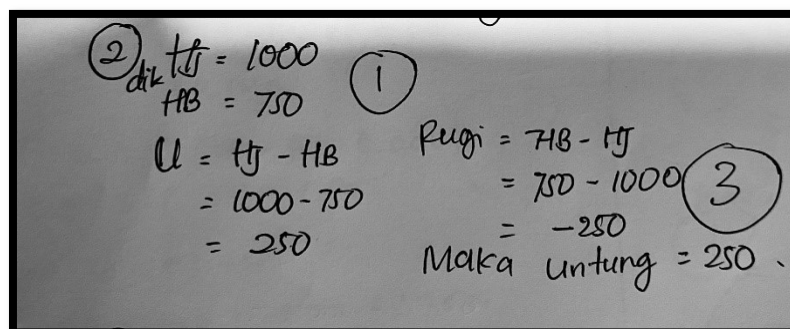 2 dik HJ = 1000
1
HB = 750
U = HJ - HB
= 1000 - 750
= 250
Rugi = HB - HJ
= 750 - 1000
3
= -250
Maka untung = 250 .